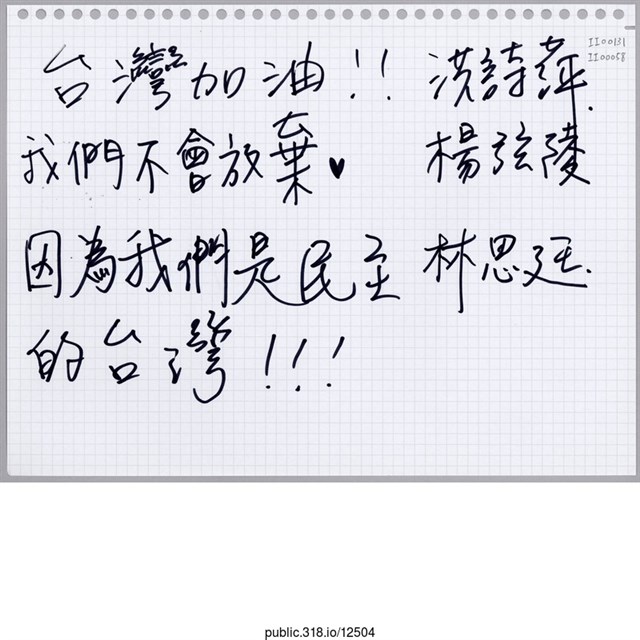 台灣加油!! 洪詩萍.
我們不會放棄♥ 楊弦陵
因為我們是民主 林思廷.
的台灣!!!
II00131
II00058
public.318.io/12504